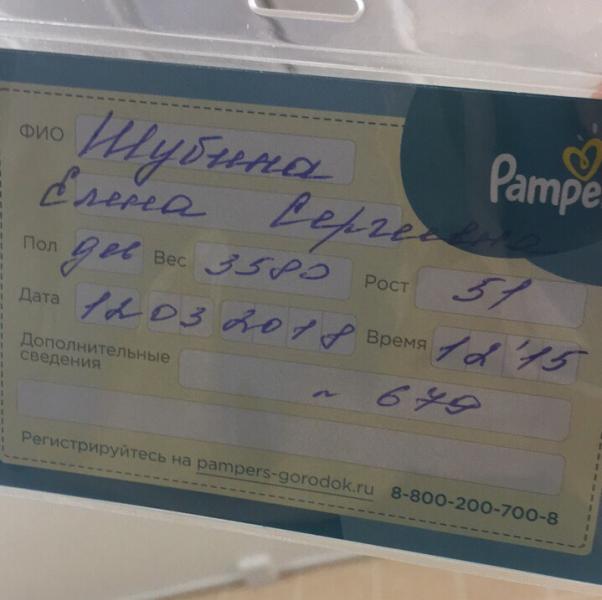 ФИО Шубина
Pampe
Елена Сергеевна
Пол дев Вес 3580 Рост 51
Дата 12 03 2018 Время 12'15
Дополнительные
сведения
~ 679
Регистрируйтесь на pampers-gorodok.ru 8-800-200-700-8